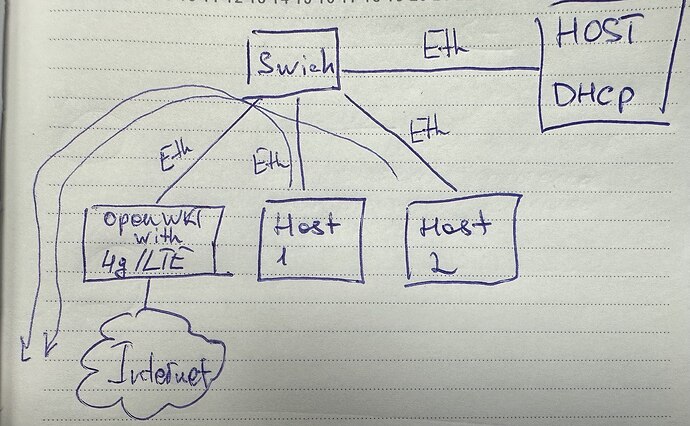 Swich
Eth
HOST
DHCP
Eth
Eth
Eth
OpenWRT
with
4g/LTE
Host
1
Host
2
Internet